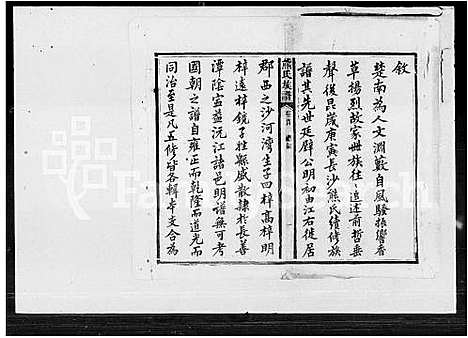 敘
楚南為人文淵藪自風騷振響香
草揚烈故家世族往〻追述前哲垂
聲後昆歲庚寅長沙熊氏續修族
譜其先世延辟公明初由江右徙居
熊氏族譜 卷首
郡西之沙河灣生子四梓高梓明
梓遠梓鏡子姓縣盛散隸於長善
潭陰寧益沅江諸邑明譜無可考
國朝之譜自雍正而乾隆而道光而
同治至是凡五修皆各輯本支合為